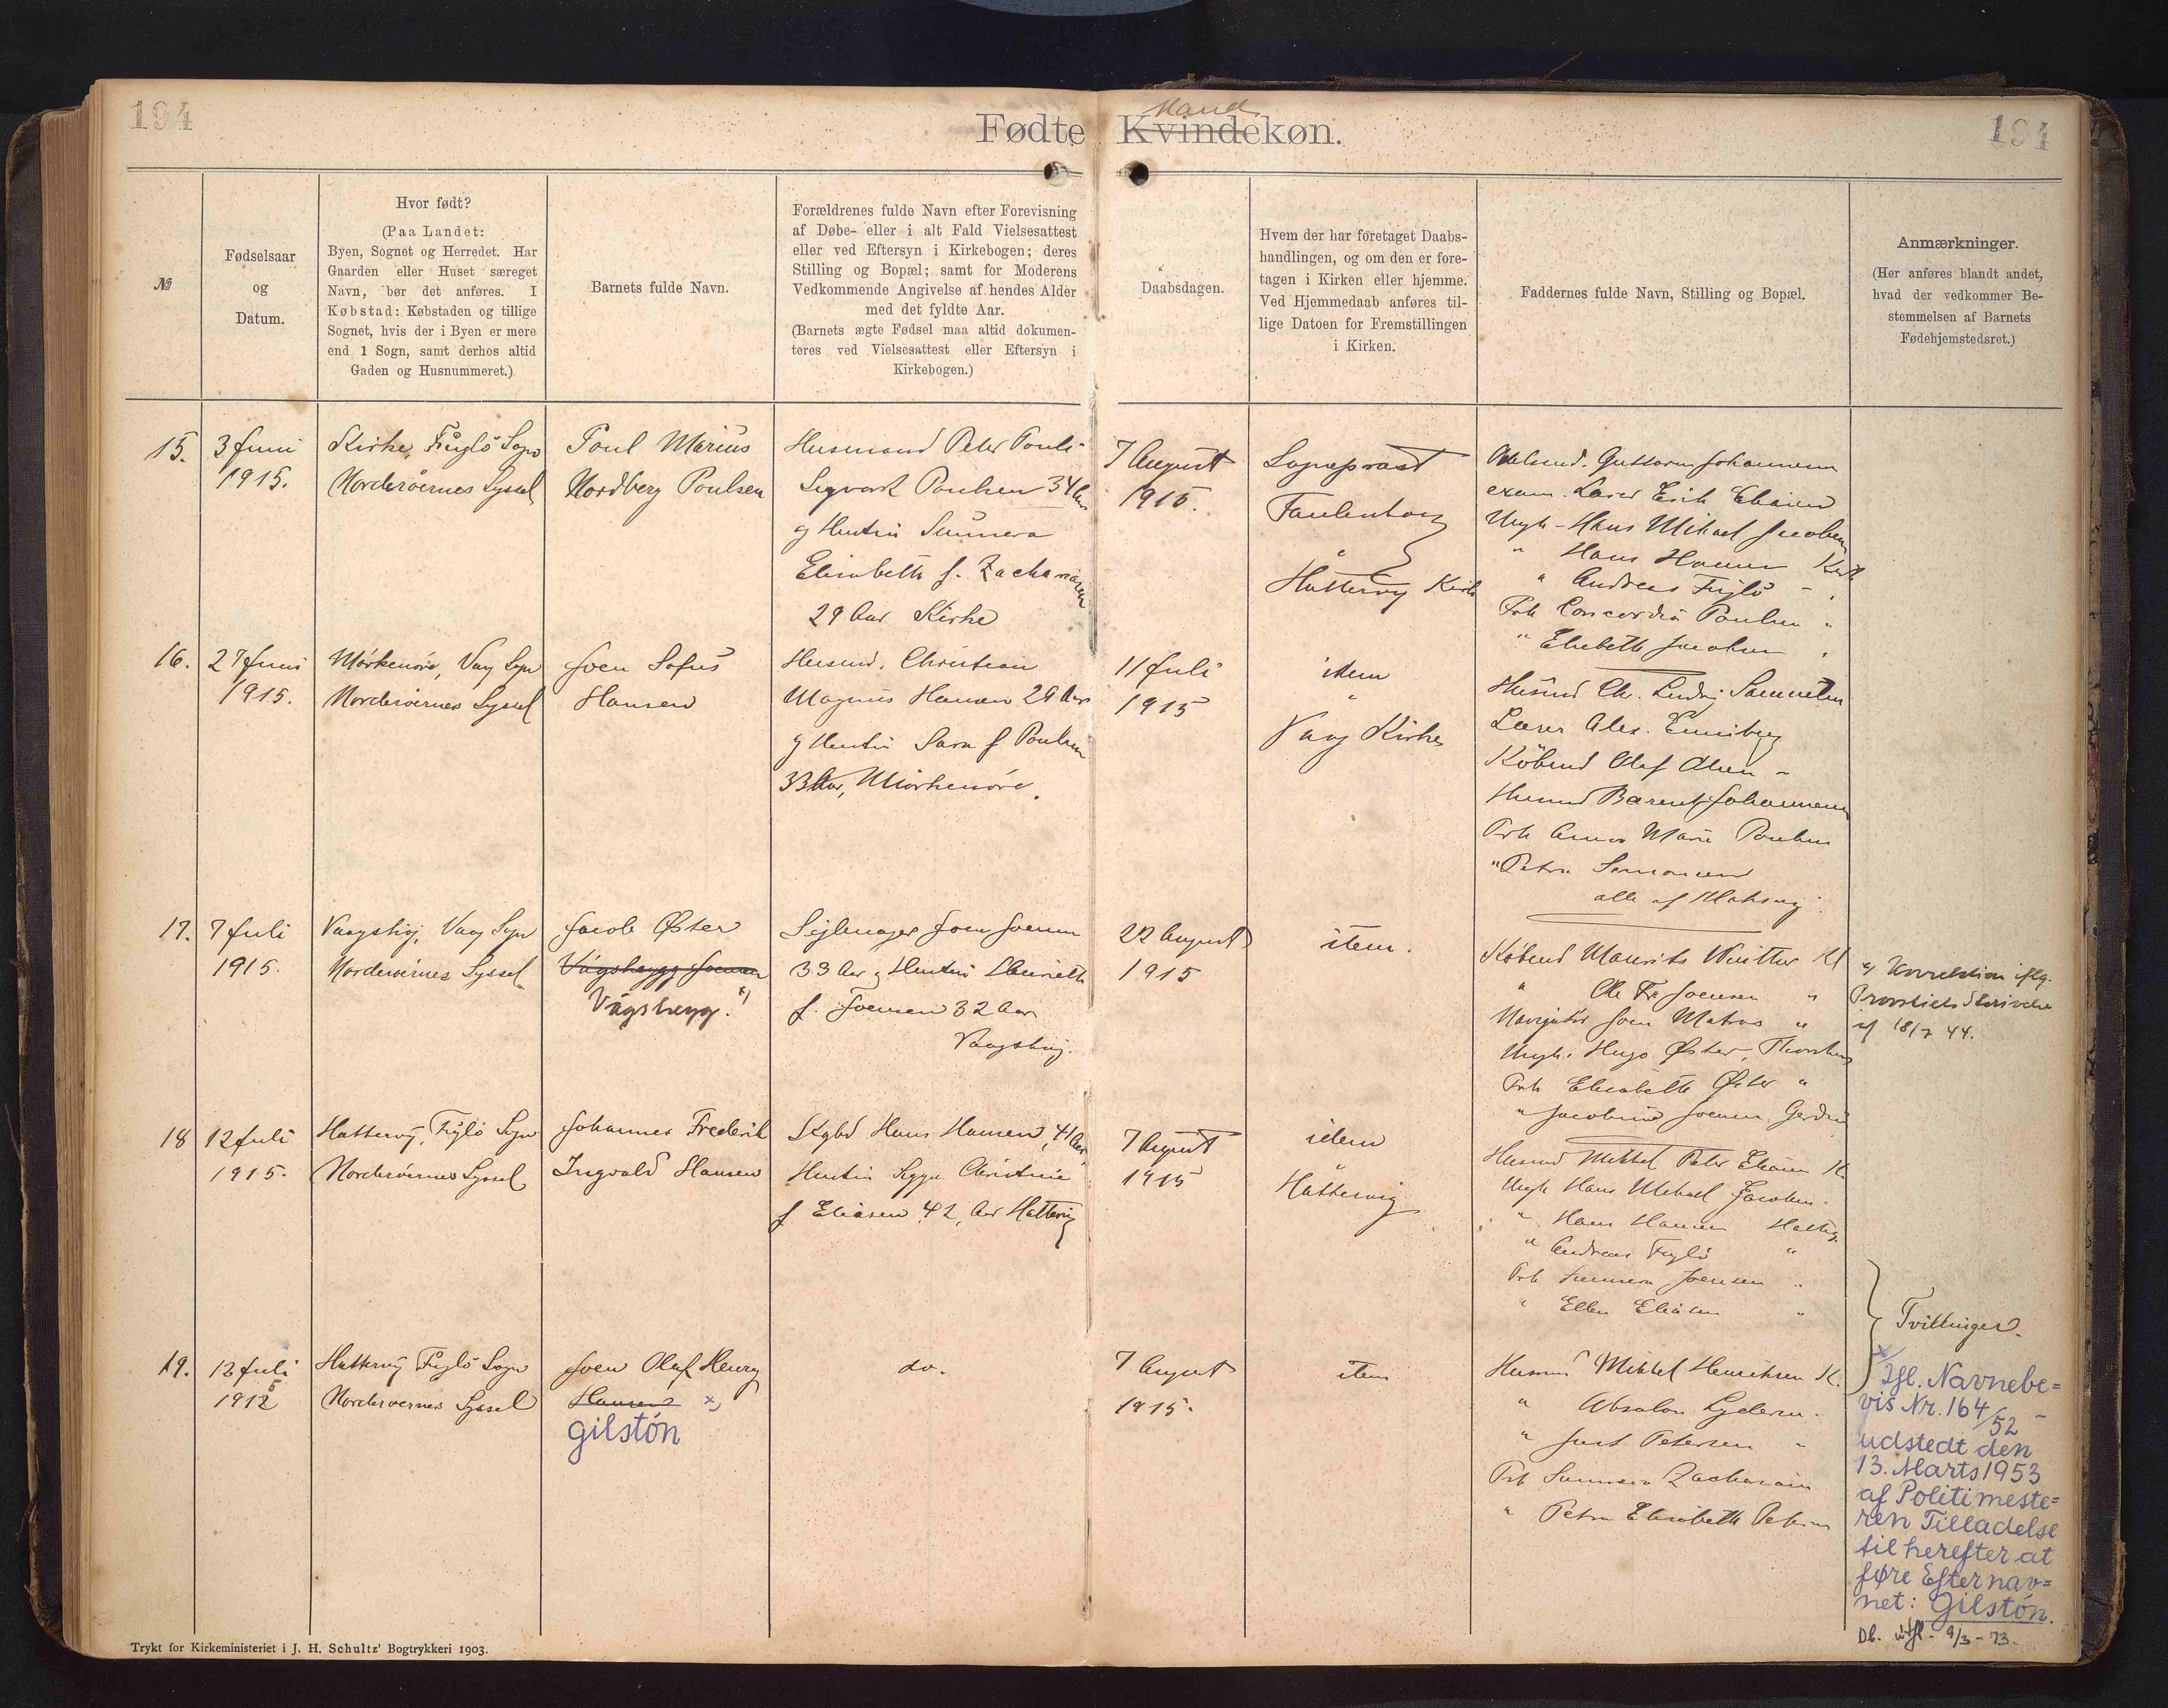 194
Fødte
Mand
Kvindekøn.
194
№
Fødselsaar
og
Datum.
Hvor født?
(Paa Landet:
Byen, Sognet og Herredet. Har
Gaarden eller Huset særeget
Navn, bør det anføres. I
Købstad: Købstaden og tillige
Sognet, hvis der i Byen er mere
end 1 Sogn, samt derhos altid
Gaden og Husnummeret.)
Barnets fulde Navn.
Forældrenes fulde Navn efter Forevisning
af Døbe- eller i alt Fald Vielsesattest
eller ved Eftersyn i Kirkebogen; deres
Stilling og Bopæl; samt for Moderens
Vedkommende Angivelse af hendes Alder
med det fyldte Aar.
(Barnets ægte Fødsel maa altid dokumen-
teres ved Vielsesattest eller Eftersyn i
Kirkebogen.)
Daabsdagen.
Hvem der har foretaget Daabs-
handlingen, og om den er fore-
tagen i Kirken eller hjemme.
Ved Hjemmedaab anføres til-
lige Datoen for Fremstillingen
i Kirken.
Faddernes fulde Navn, Stilling og Bopæl.
Anmærkninger.
(Her anføres blandt andet,
hvad der vedkommer Be-
stemmelsen af Barnets
Fødehjemstedsret.)
15.
3 Juni
1915.
Kirke, Fuglö Sogn
Norderöernes Syssel
Poul Marius
Nordberg Poulsen
Husmand Peter Pouli
Sigvart Poulsen 34 Aar
og Hustru Sunneva
Elisabeth f. Zachariasen
29 Aar Kirke
7 August
1915.
Sogneprast
Hattervig Kirke
Guttorm Johannesen
exam. Lærer Erik Eliasen
Ungk. Hans Mikael Jacobsen
" Hans Hansen Kirke
" Andreas Fuglö
Frk Concordia Poulsen "
" Elsebeth Jacobsen "
16.
27 Juni
1915.
Mörkenöre, Vaag Sogn
Norderöernes Syssel
Joen Sofus
Hansen
Husmd. Christian
Magnus Hansen 29 Aar
og Hustru Sara f Poulsen
33 Aar, Mörkenöre.
11 Juli
1915
idem
Vaag Kirke
Husmd Chr. Ludvig Samuelsen
Lærer Alex. Enniberg
Köbmd Olaf Olsen -
Husmd Barent Johannesen
Frk Anna Marie Poulsen
" Petra Simonsen
alle af Klaksvig.
17.
7 Juli
1915.
Vaagshøj, Vaag Sogn
Norderöernes Syssel
Jacob Øster
Vágsheygg Joensen
Vágsheygg. x)
Sejlmager Joen Joensen
33 Aar og Hustru Henriette
f. Joensen 32 Aar
Vaagshøj.
22 August
1915
idem.
Köbmd Maurits Winther Kl
" Ole Fr Joensen "
Navigatör Joen Matras "
Ungk. Hugo Øster, Thorshavn
Frk Elisabeth Øster "
" Jacobine Joensen, Gerdum
x) Korrektion iflg.
Provstiets Skrivelse
af 18/7 44.
18
12 Juli
1915.
Hattervig, Fuglö Sogn
Norderöernes Syssel
Johannes Frederik
Ingvald Hansen
Hans Hansen, 41 Aar
Hustru Christine
f Eliasen 42, Aar Hattervig
7 August
1915
idem
Hattervig
Husmd Mikkel Peter Eliasen K.
Ungk Hans Mikael Jacobsen.
" Hans Hansen Hattvg.
" Andreas Fuglö "
Frk Sunneva Joensen "
" Ellen Eliasen "
Tvillinger.
19.
13 Juli
1915
Hattervig Fuglö Sogn
Norderöernes Syssel
Joen Olaf Henry
Hansen x)
Gilstón
do.
7. August
1915.
idem
Husmd Mikkel Henriksen K.
" Absalon Lydersen -
" Just Petersen "
Frk Sunneva Zachariasen
" Petra Elisabeth
x
Ifl. Navnebe=
vis Nr. 164/52 -
udstedt den
13. Marts 1953
af Politimeste=
ren Tilladelse
til herefter at
føre Efternav=
net: Gilstón.
Db. utfl. 9/3-73.
Trykt for Kirkeministeriet i J. H. Schultz' Bogtrykkeri 1903.